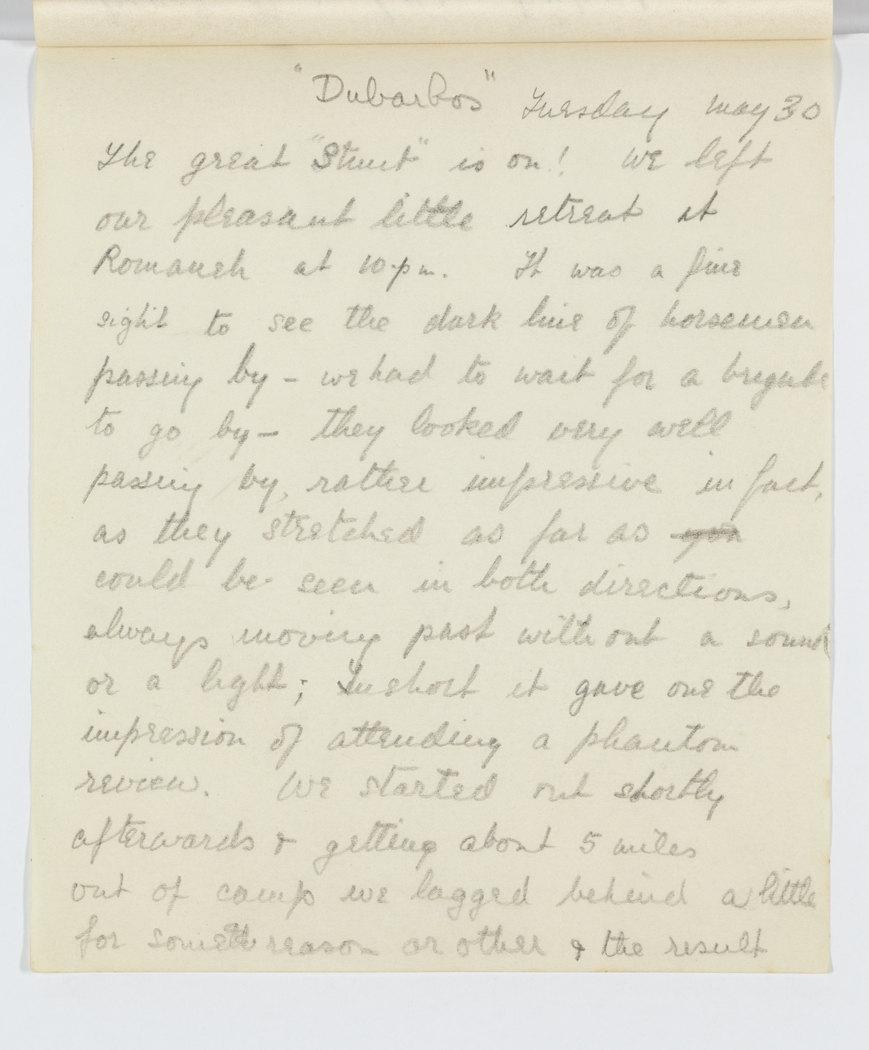 "Dubarbos" Tuesday May 30
The great "Stunt" is on! We left
our pleasant little retreat at
Romaneh at 10 p.m. It was a fine
sight to see the dark line of horsemen
passing by - we had to wait for a brigade
to go by - they looked very well
passing by, rather impressive in fact,
as they stretched as far as you
could be seen in both directions,
always moving past without a sound
or a light; In short it gave one the
impression of attending a phantom
review. We started out shortly
afterwards & getting about 5 miles
out of camp we lagged behind a little
for some reason or other & the result